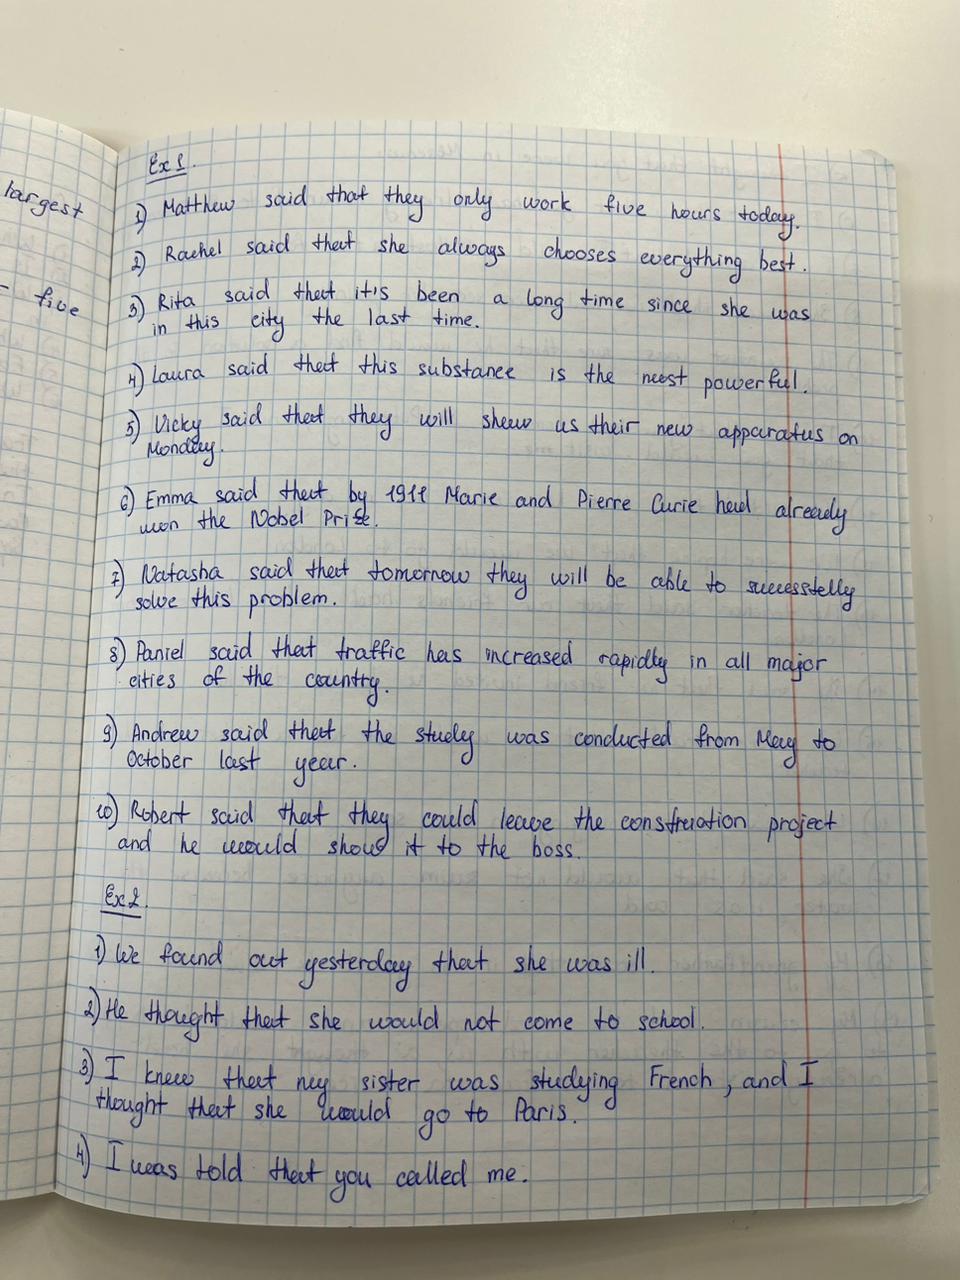 largest
- five
Ex 1.
1) Matthew said that they only work five hours today.
2) Rachel said that she always chooses everything best.
3) Rita said that it's been a long time since she was
in this city the last time.
4) Laura said that this substance is the most powerful.
5) Vicky said that they will show us their new apparatus on
Monday.
6) Emma said that by 1911 Marie and Pierre Curie had already
won the Nobel Prize.
7) Natasha said that tomorrow they will be able to successfelly
solve this problem.
8) Daniel said that traffic has increased rapidly in all major
cities of the country.
9) Andrew said that the study was conducted from May to
October last year.
10) Robert said that they could leave the construction project
and he would show it to the boss.
Ex 2.
1) We found out yesterday that she was ill.
2) He thought that she would not come to school.
3) I knew that my sister was studying French, and I
thought that she would go to Paris.
4) I was told that you called me.